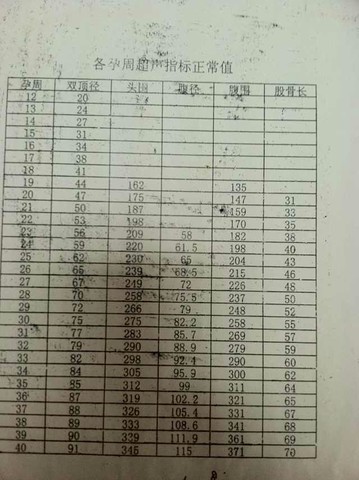 各孕周超声指标正常值
孕周 双顶径 头围 腹径 腹围 股骨长
12 20
13 24
14 27
15 31
16 34
17 38
18 41
19 44 162 135
20 47 175 147 31
21 50 187 159 33
22 53 198 170 35
23 56 209 58 182 38
24 59 220 61.5 198 40
25 62 230 65 204 43
26 65 239 68.5 215 46
27 67 249 72 226 48
28 70 258 75.5 237 50
29 72 266 79 248 52
30 75 275 82.2 258 55
31 77 283 85.7 269 57
32 79 290 88.9 279 59
33 82 298 92.4 290 60
34 84 305 95.9 300 62
35 85 312 99 311 64
36 87 319 102.2 321 65
37 88 326 105.4 331 67
38 89 333 108.6 341 68
39 90 339 111.9 361 69
40 91 345 115 371 70